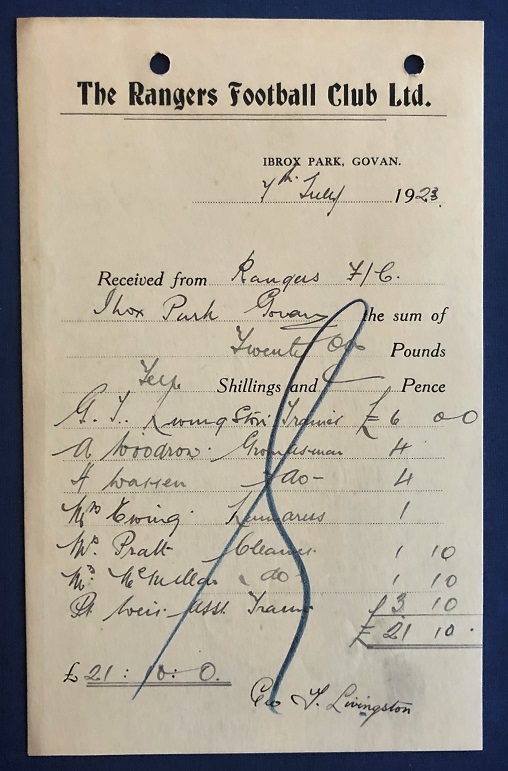 The Rangers Football Club Ltd.
IBROX PARK, GOVAN.
7th July 1923.
Received from Rangers F/C.
Ibrox Park Govan the sum of
Twenty One Pounds
Ten Shillings and Pence
G. T. Livingston Trainer £ 6 00
A Woodrow. Groundsman 4
H Watson do- 4
Mrs Ewing 1
Mrs Pratt Cleaner 1 10
Mrs McMillan do 1 10
Weir Asst Trainer £ 3 10
£ 21 10.
£ 21 : 10 : 0.
Geo T. Livingston